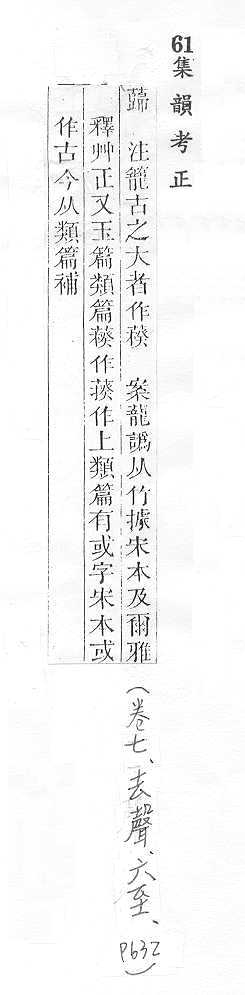 61集韻考正
蘬 注籠古之大者作 案龍譌从竹據宋本及爾雅
釋艸正又玉篇類篇作作上類篇有或字宋本或
作古今从類篇補
(卷七、去聲、六至、P632)